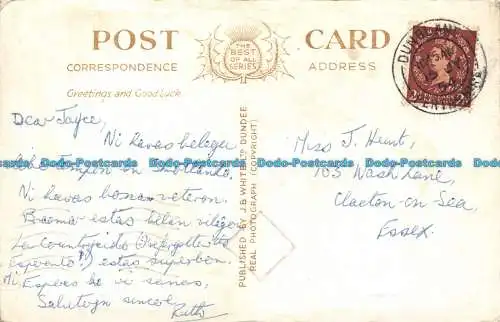 POST CARD
THE
BEST
OF ALL
SERIES
CORRESPONDENCE
ADDRESS
Greetings and Good Luck
Dear Joyce,
Ni havas belega
tempon en
Ni havas bonan veteron.
estas belan
La
Esperanto!) estas superban.
Mi Esperas ke vi sanas,
Salutojn
Ruth
PUBLISHED BY J. B. WHITE LTD. DUNDEE
REAL PHOTOGRAPH (COPYRIGHT)
Miss J. Hunt,
103 Wash Lane,
Clacton-on-Sea,
Essex.
Dodo-Postcards Dodo-Postcards Dodo-Postcards Dodo-Postcards Dodo-Postcards Dodo-Postcards